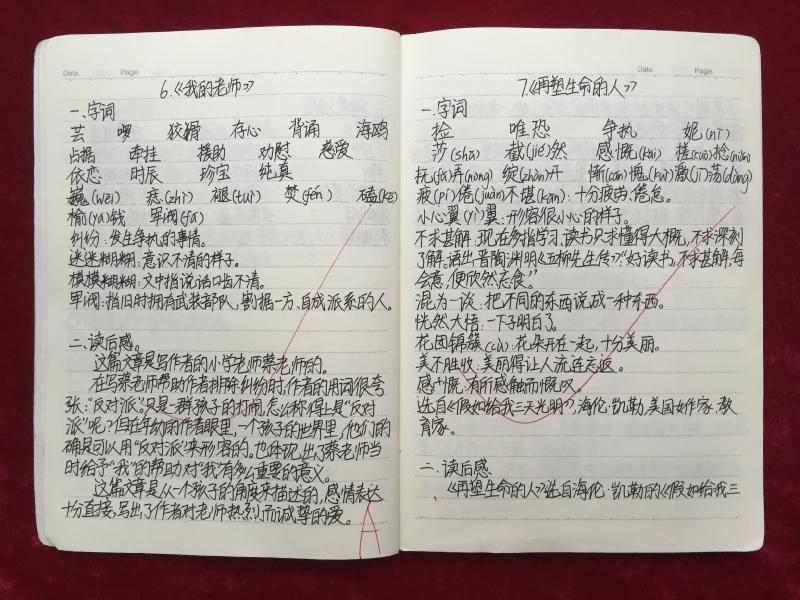 Date. Page.
6.《我的老师》
一.字词
芸 啰 狡猾 存心 背诵 海鸥
占据 牵挂 援助 劝慰 慈爱
依恋 时辰 珍宝 纯真
巍(wei) 痣(zhì) 褪(tuì) 焚(fén) 磕(kē)
榆(yú)钱 军阀(fá)
纠纷:发生争执的事情。
迷迷糊糊:意识不清的样子。
模模糊糊:文中指说话口齿不清。
军阀:指旧时拥有武装部队,割据一方,自成派系的人。
二.读后感。
这篇文章是写作者的小学老师蔡老师的。
在写蔡老师帮助作者排除纠纷时,作者的用词很夸
张:“反对派”。只是一群孩子的打闹,怎么称得上是“反对
派”呢?但在年幼的作者眼里,一个孩子的世界里,他们的
确是可以用“反对派”来形容的。也体现出了蔡老师当
时给予“我”的帮助对“我”有多么重要的意义。
这篇文章是从一个孩子的角度来描述的,感情表达
十分直接,写出了作者对老师热烈而诚挚的爱。
A
Date. Page.
7.《再塑生命的人》
一.字词
捡 唯恐 争执 妮(nī)
莎(shā) 截(jié)然 感慨(kǎi) 搓(cuō)捻(niǎn)
抚(fǔ)弄(nòng) 绽(zhàn)开 惭(cán)愧(kuì) 激(jī)荡(dàng)
疲(pí)倦(juàn)不堪(kān):十分疲劳、倦怠。
小心翼(yì)翼:形容很小心的样子。
不求甚解:现在多指学习、读书只求懂得大概,不求深刻
了解。语出晋陶渊明《五柳先生传》:“好读书,不求甚解,每
会意,便欣然忘食”。
混为一谈:把不同的东西说成一种东西。
恍然大悟:一下子明白了。
花团锦簇(cù):花朵开在一起,十分美丽。
美不胜收:美丽得让人流连忘返。
感慨:有所感触而慨叹。
选自《假如给我三天光明》,海伦·凯勒,美国女作家、教
育家。
二.读后感.
《再塑生命的人》选自海伦·凯勒的《假如给我三